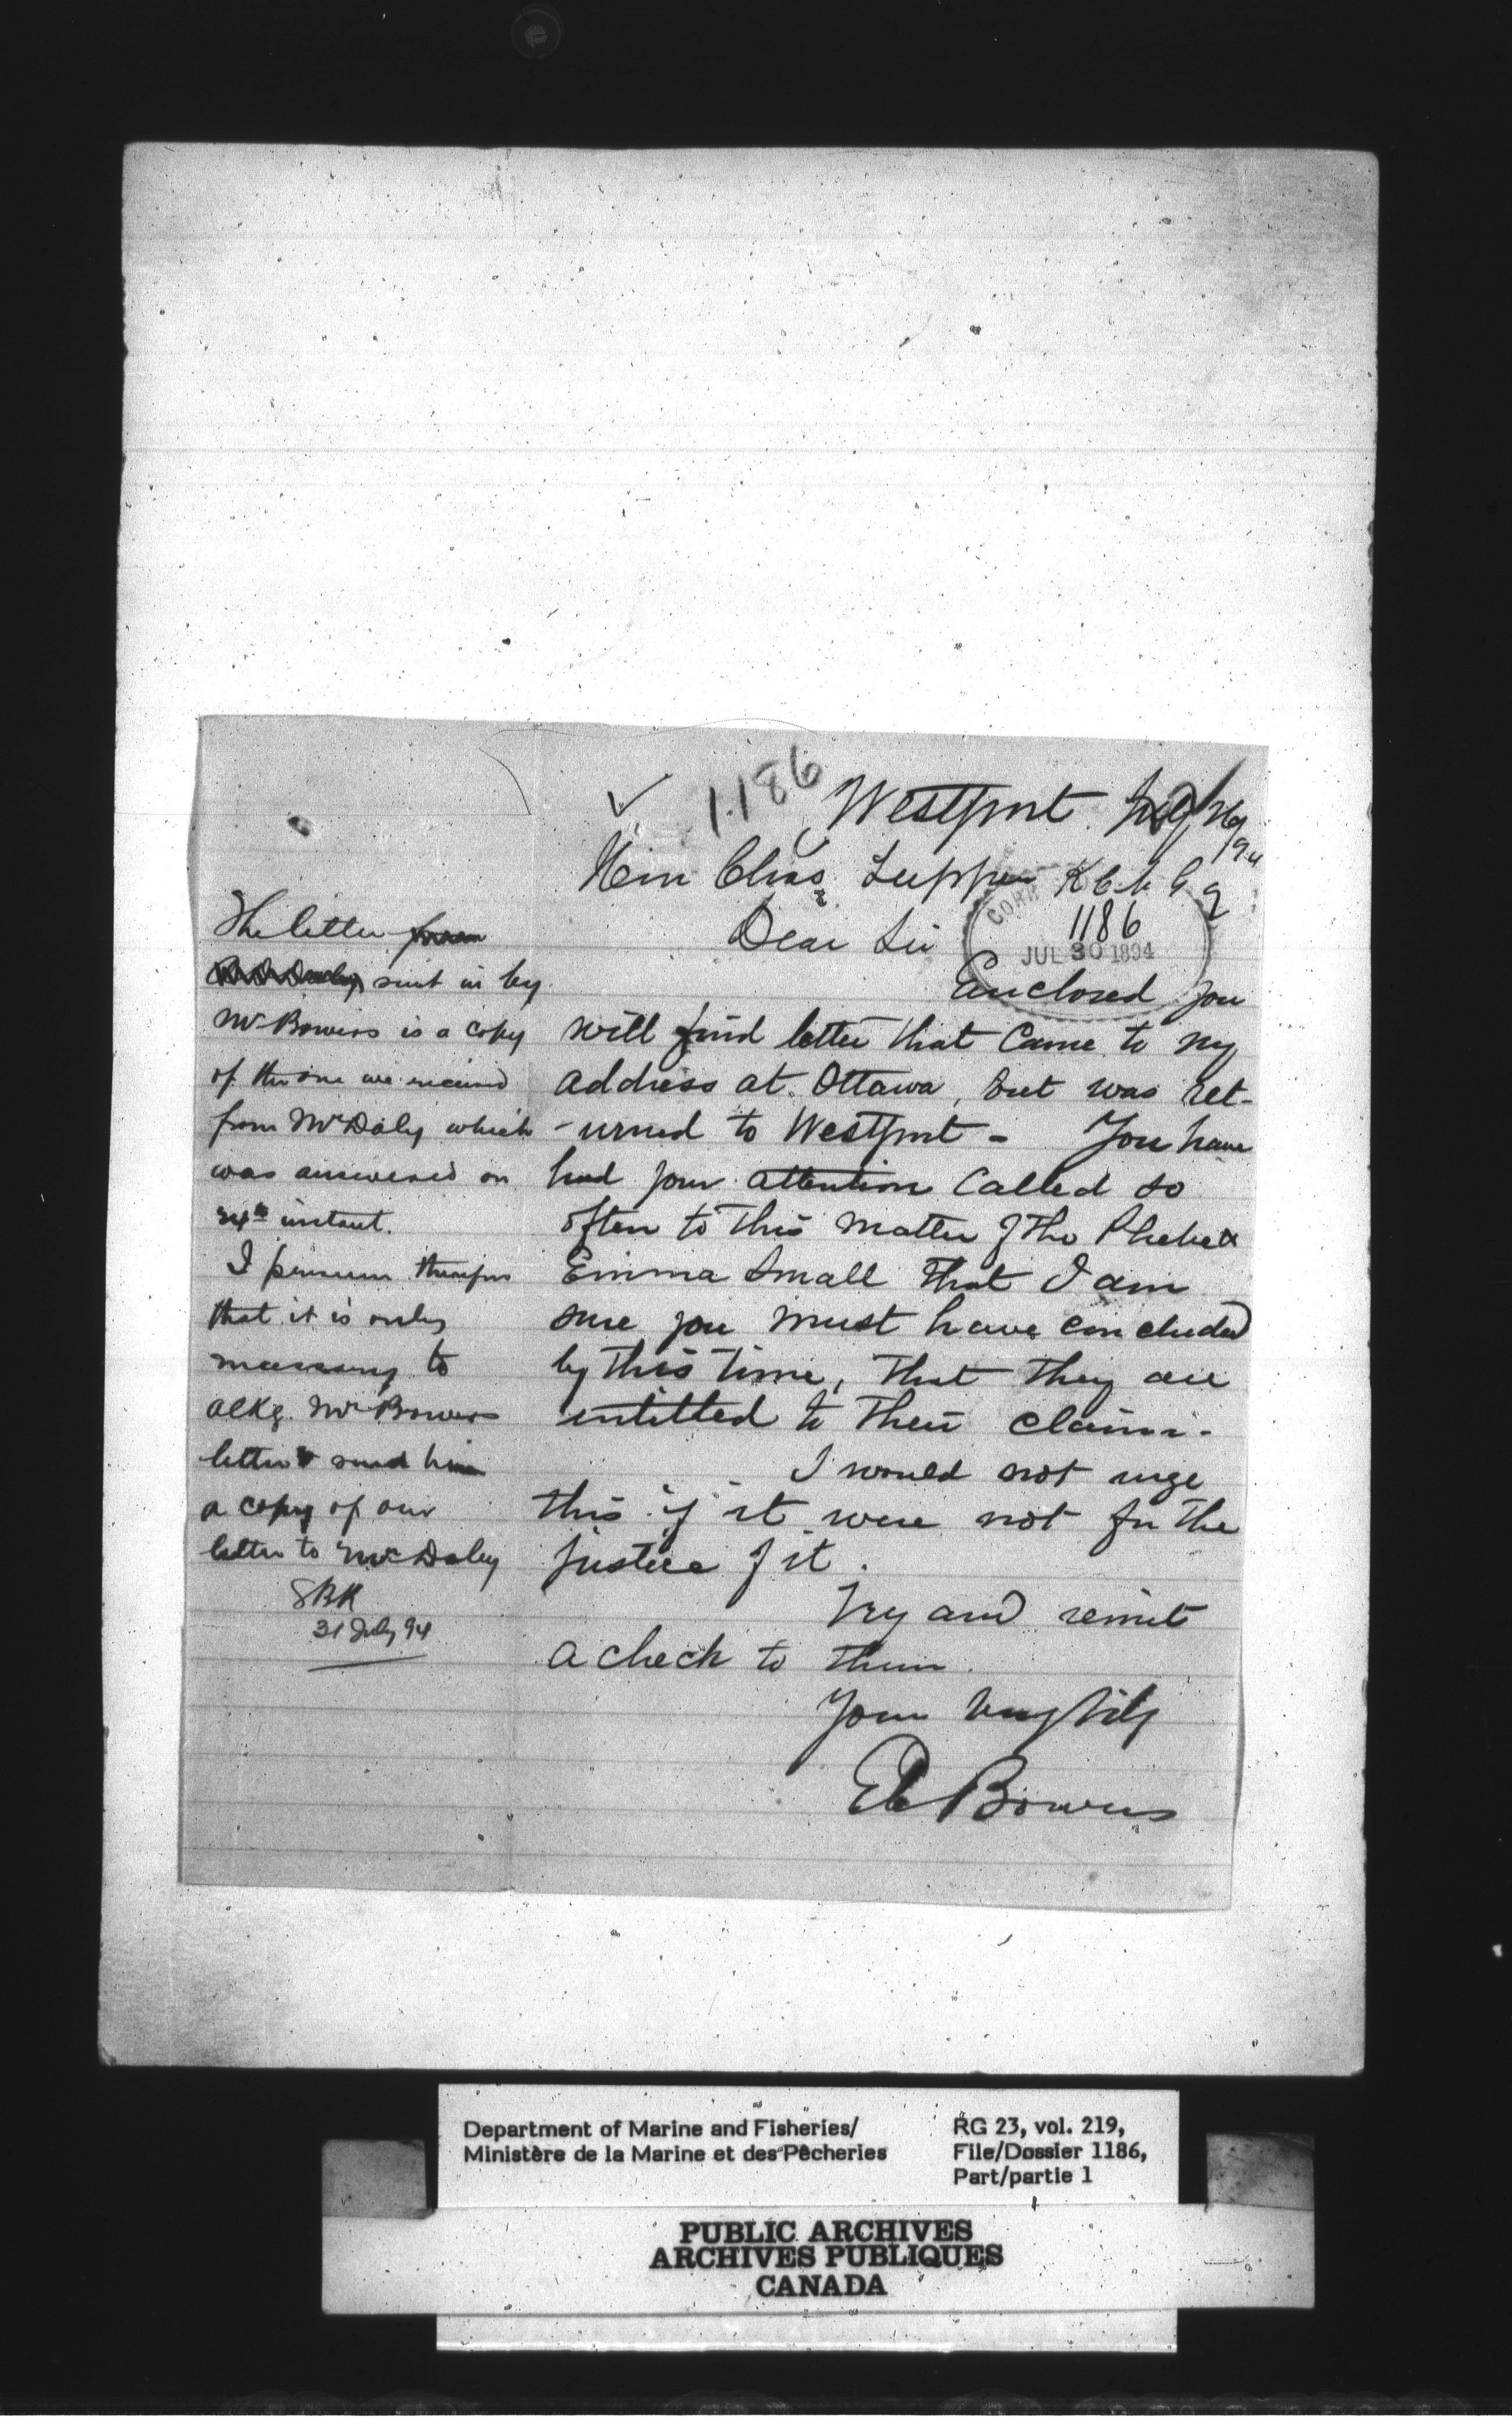 1186
Westport July 26/94
Hon Chas. Tupper K C M G
Dear Sir
1186
JUL 30 1894
Enclosed you
will find letter that Came to my
address at Ottawa, but was ret-
-urned to Westport - You have
had your attention Called so
often to this matter of the Phebe &
Emma Small that I am
sure you must have concluded
by this time, that they are
intitled to their claims.
I would not urge
this if it were not for the
justice of it.
Try and remit
a check to them.
Your very truly
Bowers
The letter from
sent in by
Mr Bowers is a copy
of the one we received
from Mr Daley which
was answered on
24th instant.
I presume therefore
that it is only
necessary to
ackg. Mr Bowers
letter & send him
a copy of our
letter to Mr Daley
31 July 94
Department of Marine and Fisheries/
Ministère de la Marine et des Pêcheries
RG 23, vol. 219,
File/Dossier 1186,
Part/partie 1
PUBLIC ARCHIVES
ARCHIVES PUBLIQUES
CANADA